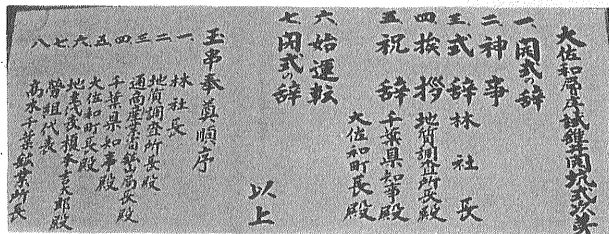 大佐和層序試錐井開坑式次第
一、開式の辞
二、神事
三、式辞 林社長
四、挨拶 地質調査所長殿
五、祝辞 千葉県知事殿
大佐和町長殿
六、始運転
七、閉式の辞
以上
玉串奉奠順序
一、林社長
二、地質調査所長殿
三、通商産業省鉱山局長殿
四、千葉県知事殿
五、大佐和町長殿
六、地主代表榎本吉太郎殿
七、營組代表
八、高水千葉鉱業所長